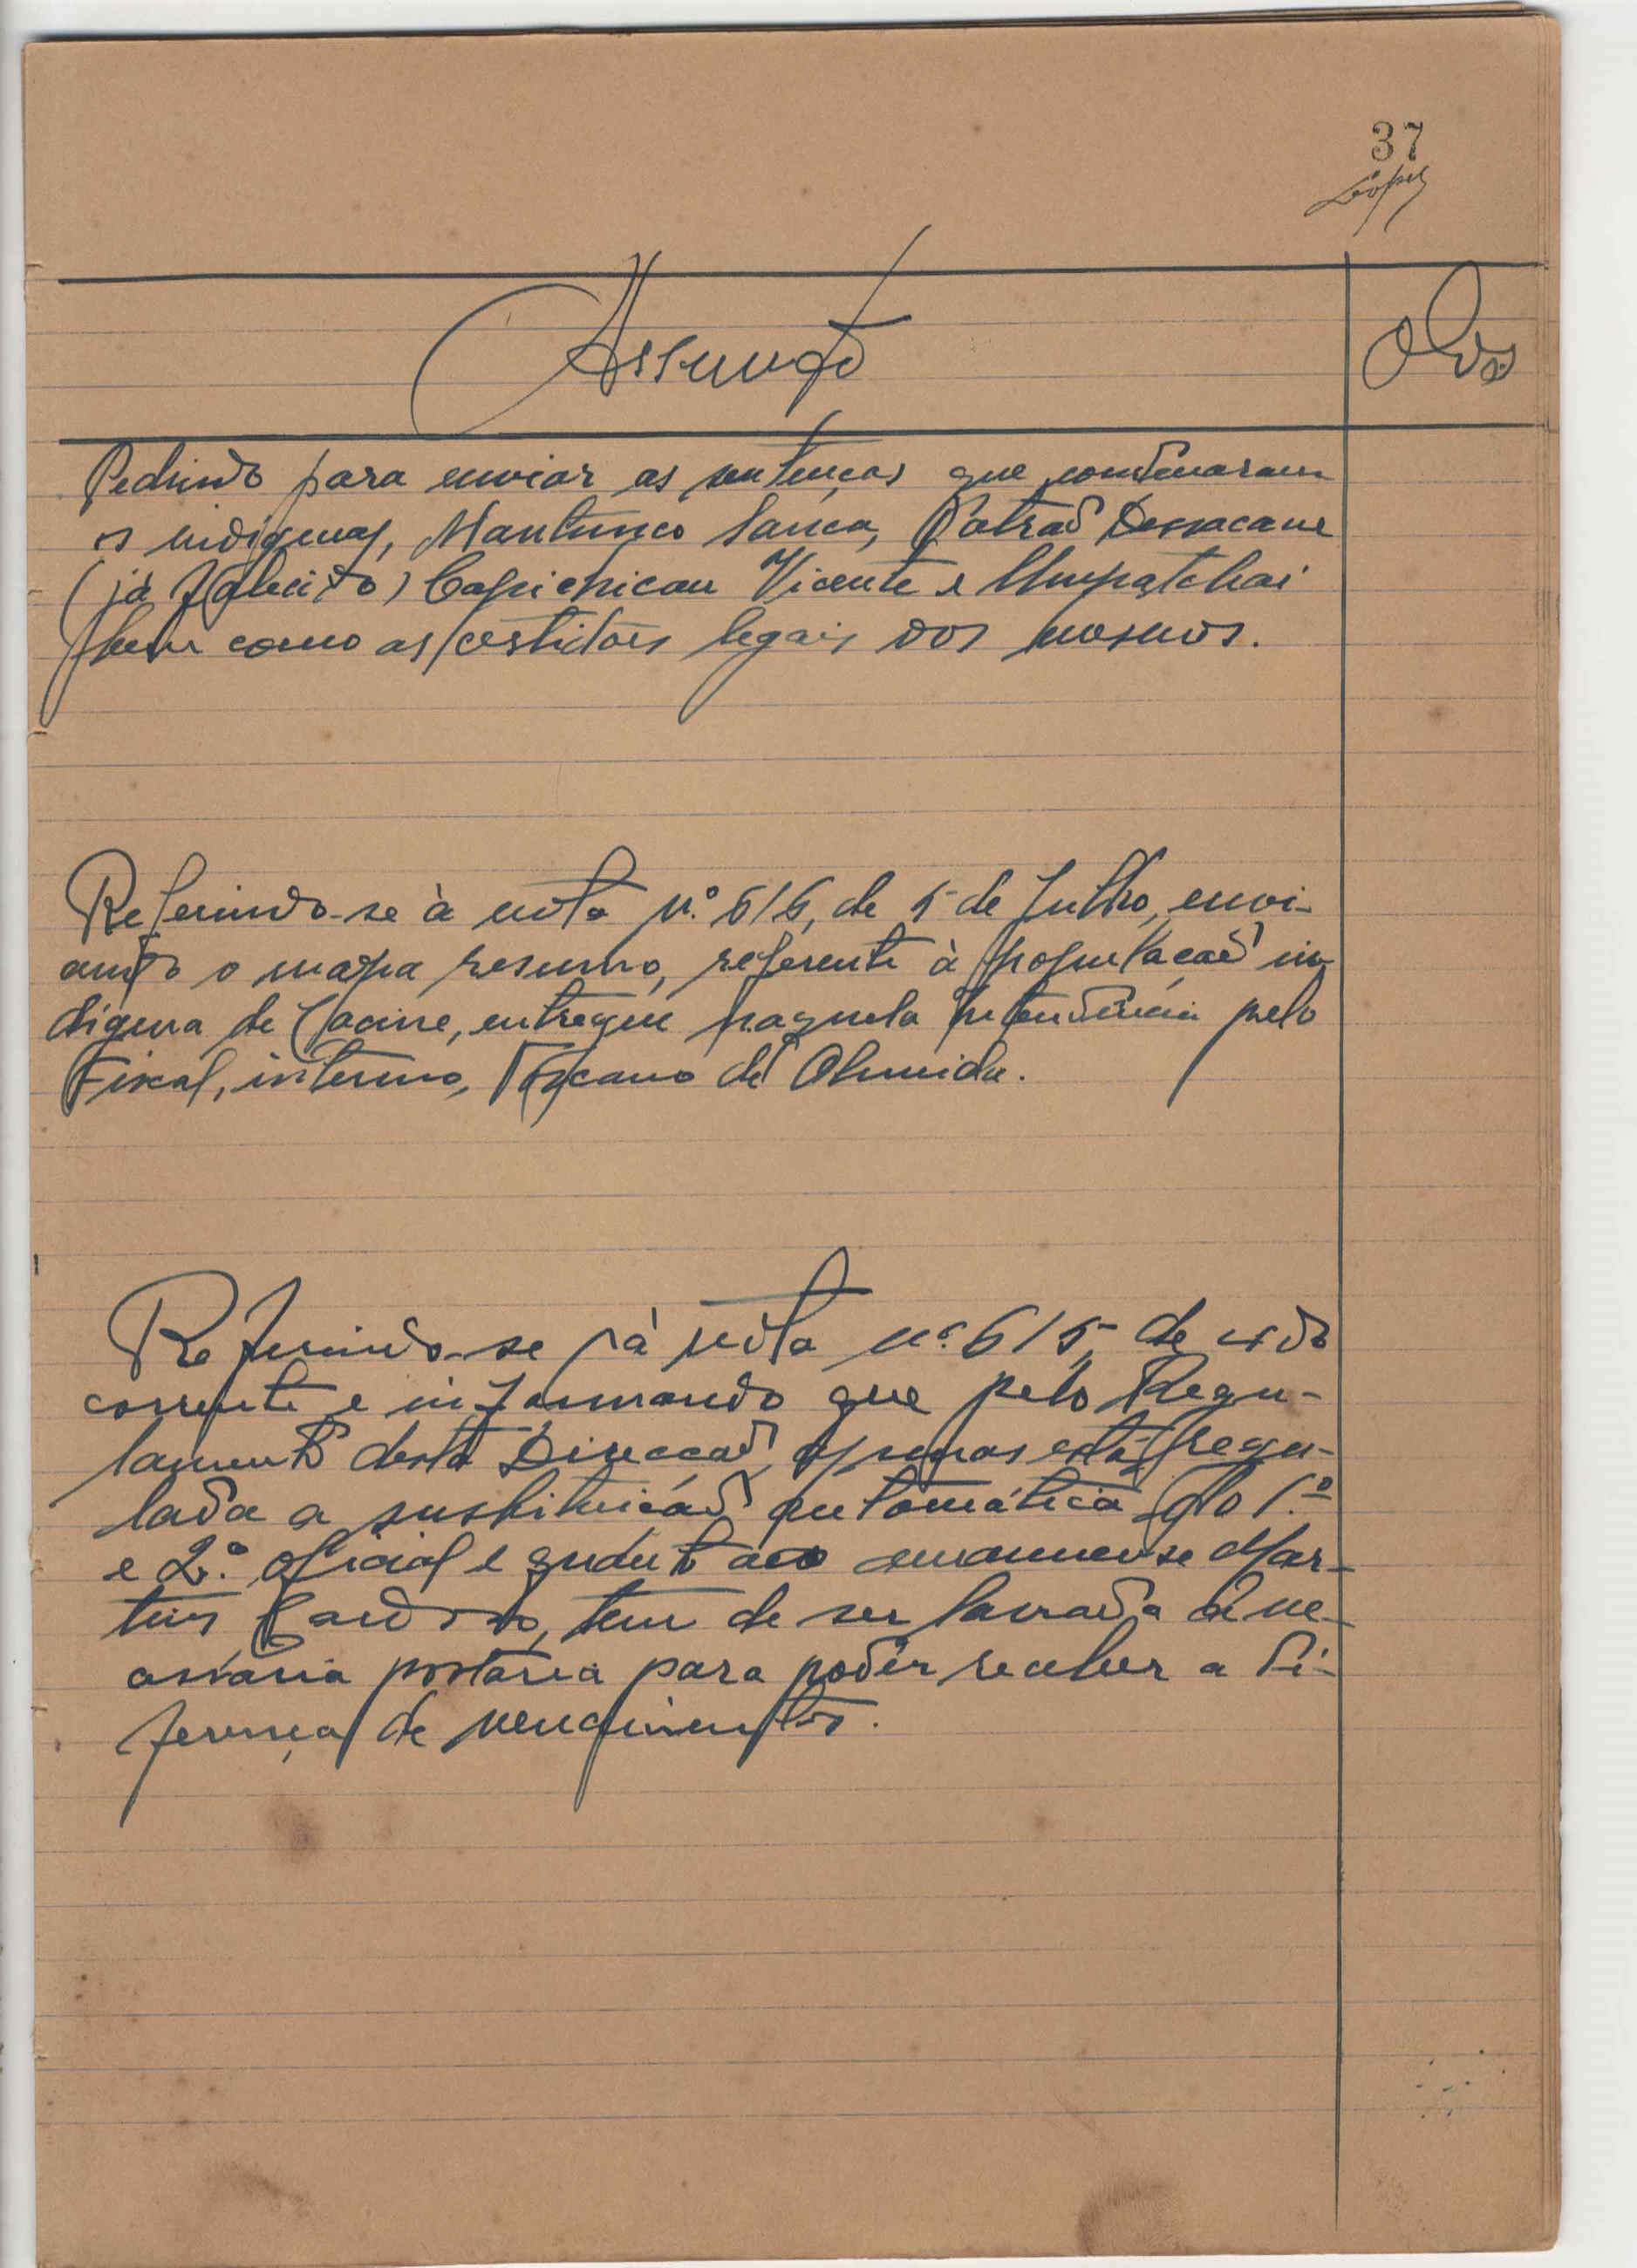 37
Lopes
Assunto
Obs
Pedindo para enviar as sentenças que condenaram
os indigenas, Mantunco Sanca, Patrão Dessacane
(já falecido) Capichicau Vicente e Umpatchai
bem como as certidões legais dos mesmos.
Referindo-se à nota n.º 616, de 5 de Julho, envi-
ando o mapa resumo, referente à população in-
digena de Cacine, entregue naquela Intendência pelo
Fiscal, interino, Toscano de Almeida.
Referindo-se à nota n.º 615, de 4 do
corrente e informando que pelo Regu-
lamento desta Direcção, apenas está regu-
lada a substituição automática do 1.º
e 2.º oficial e quanto ao amanuense Mar-
tins Cardoso, tem de ser lavrada a ne-
cessária portaria para poder receber a di-
ferença de vencimentos.